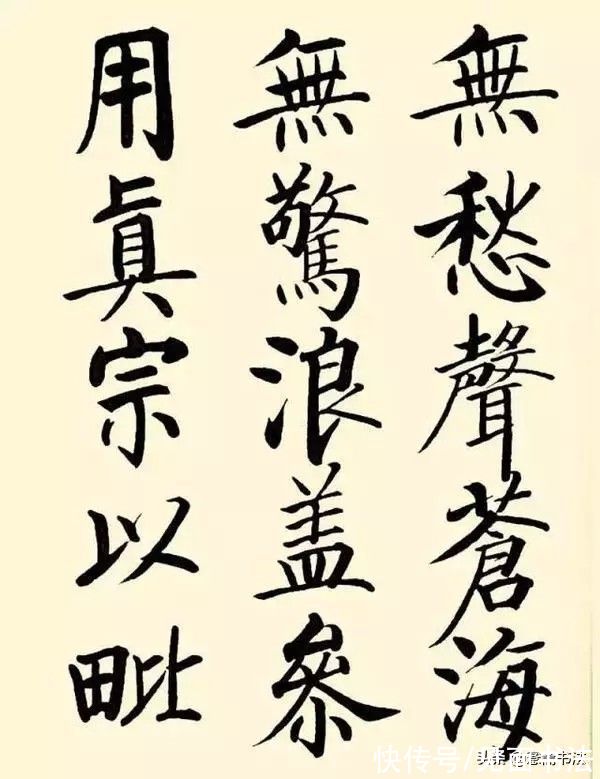 無愁聲蒼海
無驚浪盖參
用眞宗以毗
快传号/
头条